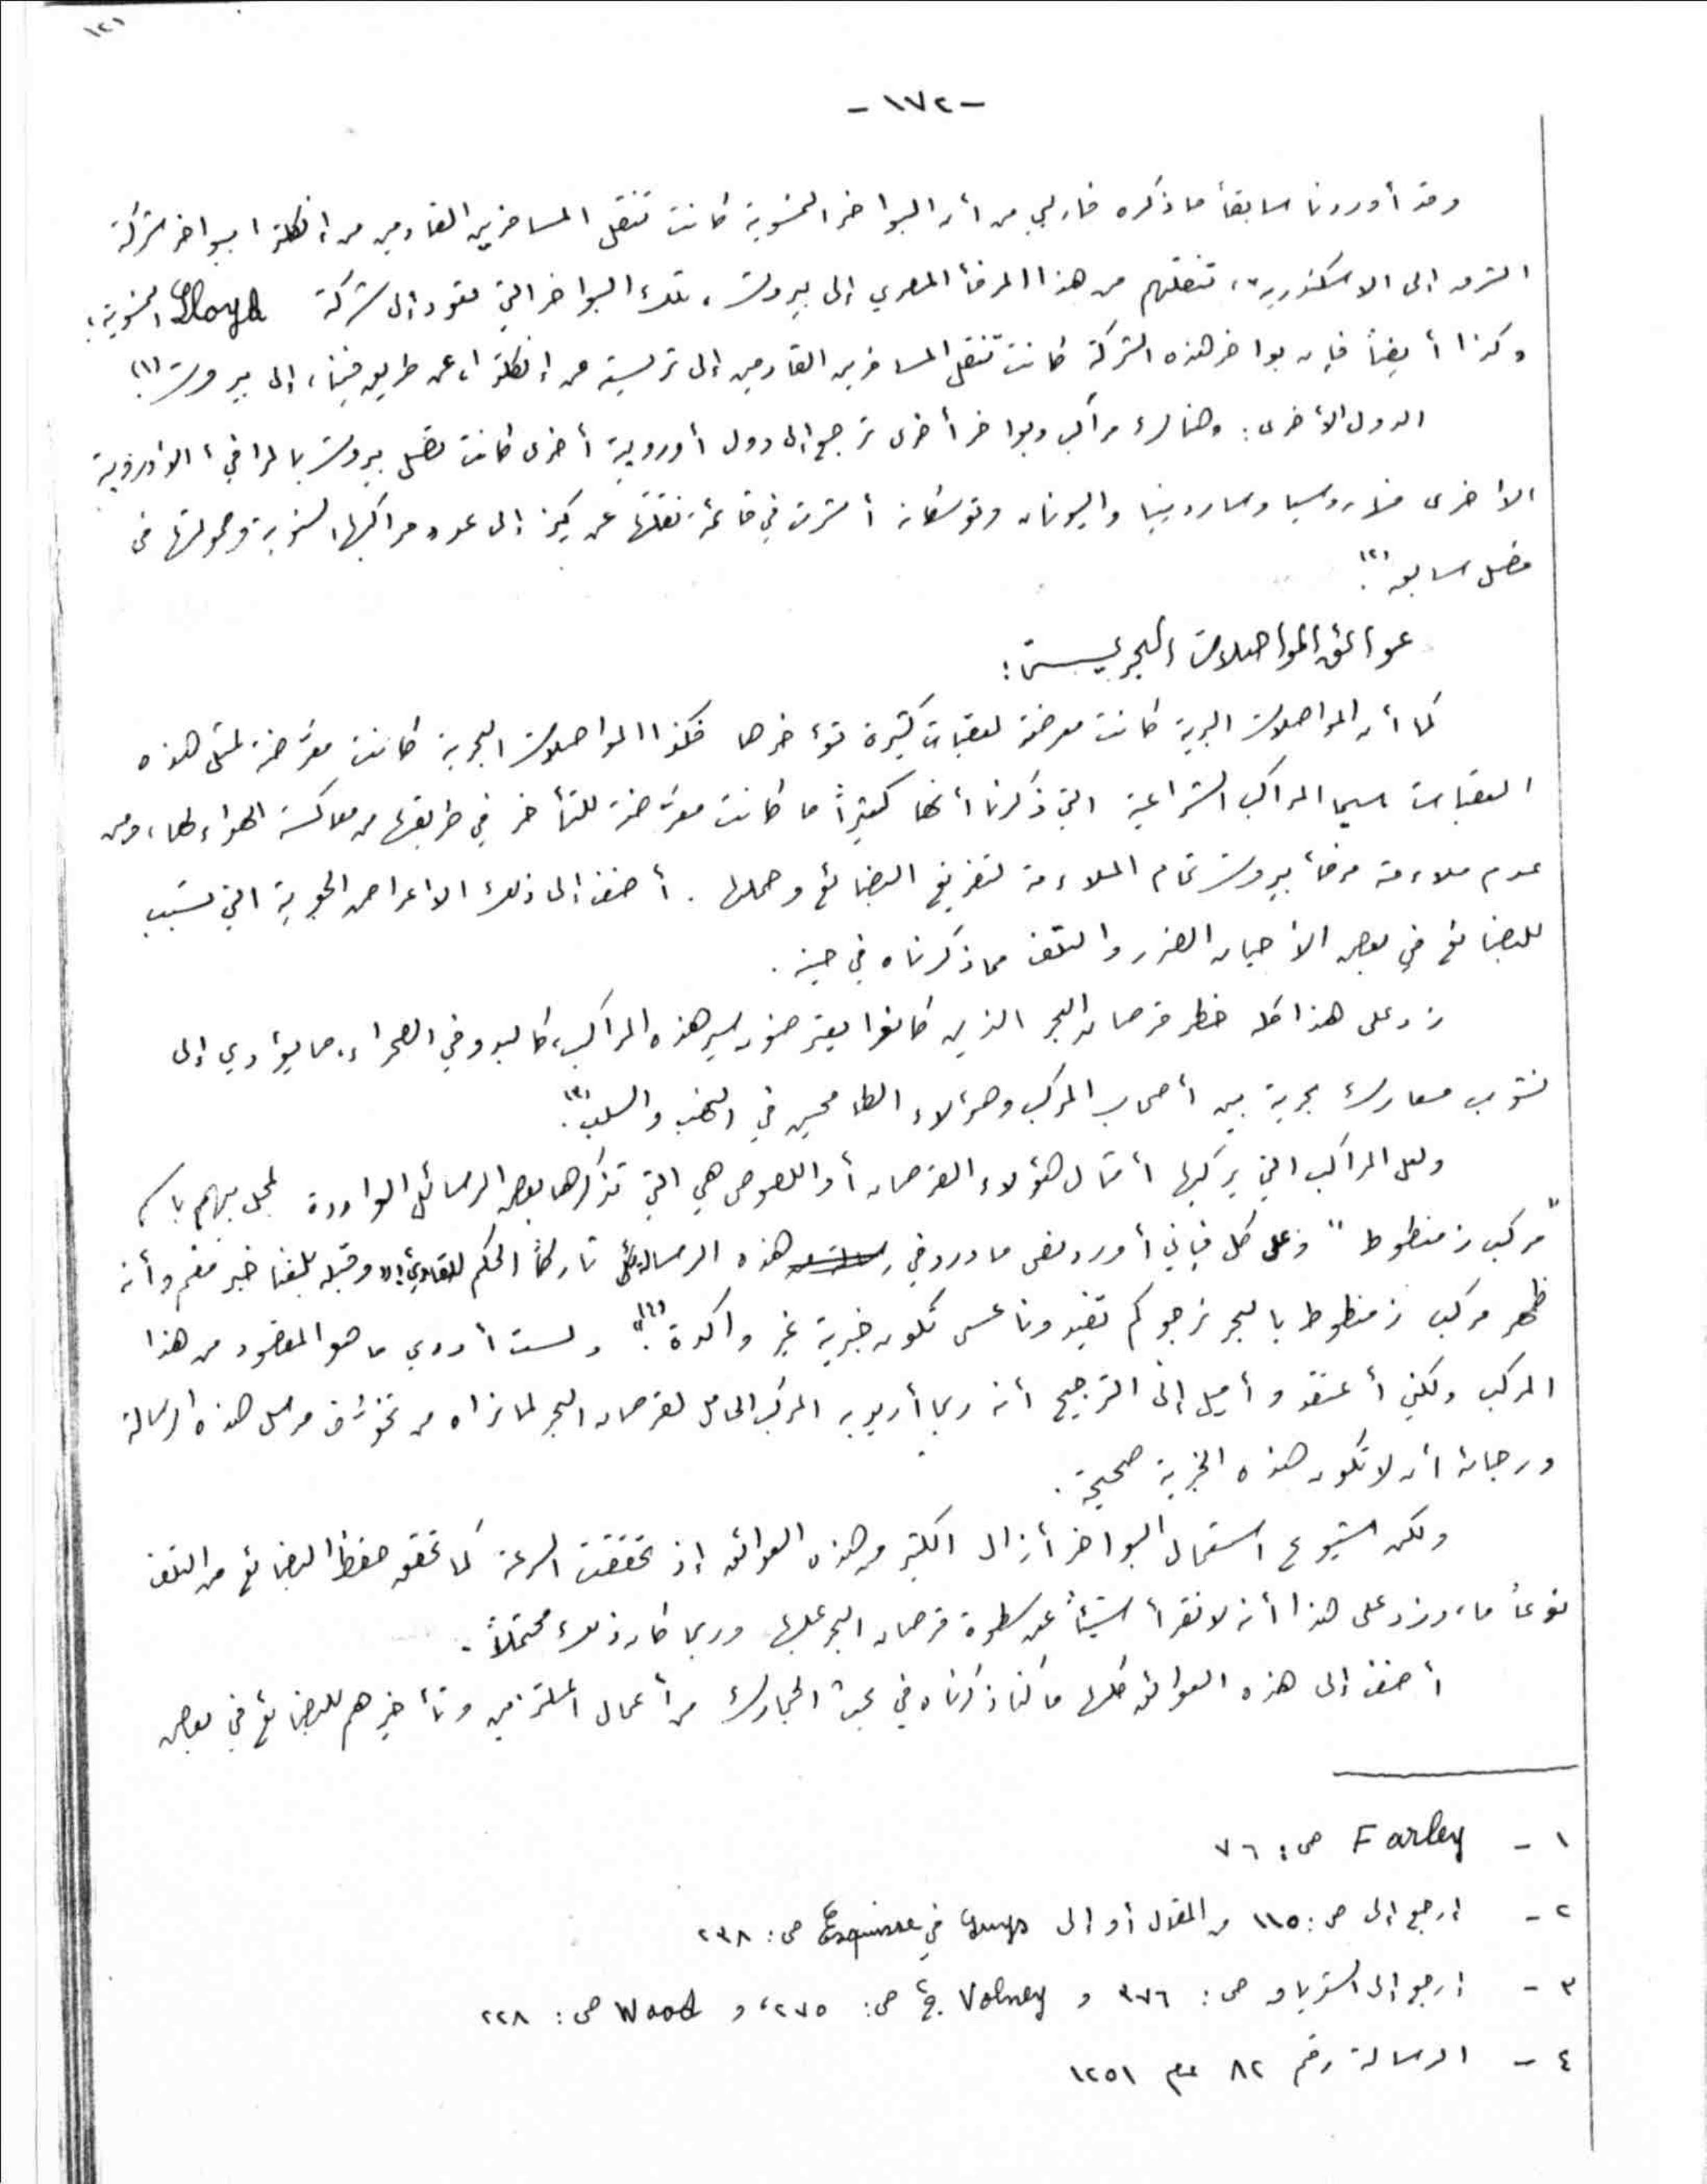 ١٢١
-١٧٢-
وقد أوردنا سابقاً ما ذكره فارلي من أن البواخر النمسوية كانت تنقل المسافرين القادمين من إنكلترا ببواخر شركة
الشرق إلى الاسكندرية، تنقلهم من هذا المرفأ المصري إلى بيروت، تلك البواخر التي تعود إلى شركة Lloyd النمسوية؛
وكذا أيضاً فإن بواخر هذه الشركة كانت تنقل المسافرين القادمين إلى تريسته من إنكلترا، عن طريق فيينا، إلى بيروت (١).
الدول الأخرى: وهنالك مراكب وبواخر أخرى ترجع إلى دول أوروبية أخرى كانت تصل بيروت بالمرافيء الأوروبية
الأخرى منها روسيا وساردينيا واليونان وتوسكانه أشرت في قائمة نقلتها عن كيز إلى عدد مراكبها السنوية وحمولتها في
فصل سابق (٢).
عوائق المواصلات البحريـــة:
كما أن المواصلات البرية كانت معرضة لعقبات كثيرة تؤخرها فكذا المواصلات البحرية كانت معرّضة لمثل هذه
العقبات سيما المراكب الشراعية التي ذكرنا أنها كثيراً ما كانت معرّضة للتأخر في طريقها من معاكسة الهواء لها، ومن
عدم ملاءمة مرفأ بيروت تمام الملاءمة لتفريغ البضائع وحملها. أضف إلى ذلك الاعراض الجوية التي تسبب
للبضائع في بعض الأحيان الضرر والتلف مما ذكرناه في حينه.
زد على هذا كله خطر قرصان البحر الذين كانوا يعترضون سير هذه المراكب، كالبدو في الصحراء، مما يؤدي إلى
نشوب معارك بحرية بين أصحاب المركب وهؤلاء الطامحين في النهب والسلب (٣).
ولعل المراكب التي يركبها أمثال هؤلاء القرصان أو اللصوص هي التي تذكرها بعض الرسائل الواردة لمحل بيهم باسم
"مركب زمنطوط" وعلى كل فإني أورد نص ما ورد في هذه الرسالة تاركاً الحكم للقاريء: "وقبله بلغنا خبر مغم وأنه
ظهر مركب زمنطوط بالبحر نرجوكم تفيدونا عسى تكون خبرية غير واكدة (٤)". ولست أدري ما هو المقصود من هذا
المركب ولكني أعتقد وأميل إلى الترجيح أنه ربما أريد به المركب الحامل لقرصان البحر لما نراه من تخوّف مرسل هذه الرسالة
ورجائه أن لا تكون هذه الخبرية صحيحة.
ولكن شيوع استعمال البواخر أزال الكثير من هذه العوائق إذ تحققت السرعة كما تحقق حفظ البضائع من التلف
نوعاً ما، وزد على هذا أنه لا نقرأ شيئاً عن سطوة قرصان البحر عليها وربما كان ذلك محتملاً.
أضف إلى هذه العوائق كلها ما كنا ذكرناه في بحث الجمارك من أعمال الملتزمين وتأخيرهم للبضائع في بعض
١ - Farley ص: ٧٦
٢ - إرجع إلى ص: ١١٥ من المقال أو إلى Guys في Esquisse ص: ٢٣٨
٣ - إرجع إلى الشرباو ص: ٣٧٦ و Volney ج ص: ٢٧٥، و Wood ص: ٢٢٨
٤ - الرسالة رقم ٨٢ عام ١٢٥١